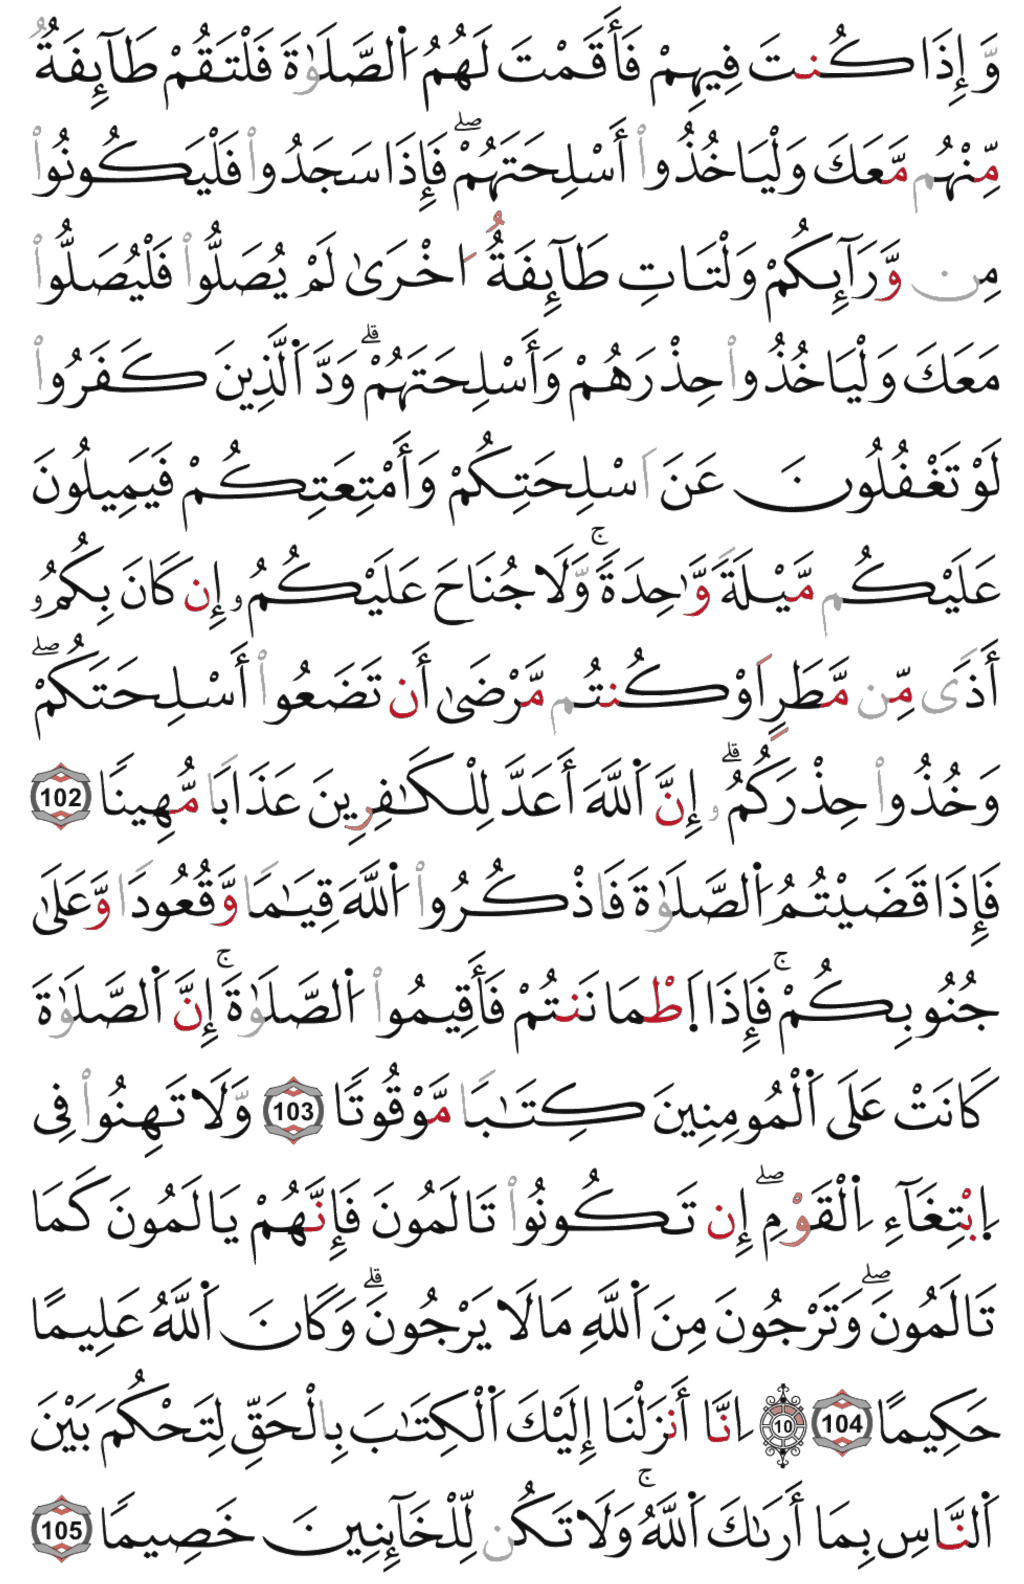 وَّإِذَا كُنتَ فِيهِمْ فَأَقَمْتَ لَهُمُ اَ۬لصَّلَوٰةَ فَلْتَقُمْ طَآئِفَةٌ
مِّنْهُم مَّعَكَ وَلْيَاخُذُواْ أَسْلِحَتَهُمْۖ فَإِذَا سَجَدُواْ فَلْيَكُونُواْ
مِن وَّرَآئِكُمْ وَلْتَاتِ طَآئِفَةٌ ا۟خْرَىٰ لَمْ يُصَلُّواْ فَلْيُصَلُّواْ
مَعَكَ وَلْيَاخُذُواْ حِذْرَهُمْ وَأَسْلِحَتَهُمْۗ وَدَّ اَ۬لذِينَ كَفَرُواْ
لَوْ تَغْفُلُونَ عَنَ اَسْلِحَتِكُمْ وَأَمْتِعَتِكُمْ فَيَمِيلُونَ
عَلَيْكُم مَّيْلَةً وَّٰحِدَةًۚ وَّلَا جُنَاحَ عَلَيْكُمُۥ إِن كَانَ بِكُمُۥ
أَذًى مِّن مَّطَرٍ اَوْ كُنتُم مَّرْضَىٰ أَن تَضَعُواْ أَسْلِحَتَكُمْۖ
وَخُذُواْ حِذْرَكُمُۥۗ إِنَّ اَ۬للَّهَ أَعَدَّ لِلْكَٰفِرِينَ عَذَابًا مُّهِينًا 102
فَإِذَا قَضَيْتُمُ اُ۬لصَّلَوٰةَ فَاذْكُرُواْ اُ۬للَّهَ قِيَٰمًا وَّقُعُودًا وَّعَلَىٰ
جُنُوبِكُمْۚ فَإِذَا اَ۪طْمَانَنتُمْ فَأَقِيمُواْ اُ۬لصَّلَوٰةَۚ إِنَّ اَ۬لصَّلَوٰةَ
كَانَتْ عَلَى اَ۬لْمُومِنِينَ كِتَٰبًا مَّوْقُوتًا 103 وَّلَا تَهِنُواْ فِى
اِ۪بْتِغَآءِ اِ۬لْقَوْمِۖ إِن تَكُونُواْ تَالَمُونَ فَإِنَّهُمْ يَالَمُونَ كَمَا
تَالَمُونَۖ وَتَرْجُونَ مِنَ اَ۬للَّهِ مَا لَا يَرْجُونَۗ وَكَانَ اَ۬للَّهُ عَلِيمًا
حَكِيمًا 104 10 اِنَّا أَنزَلْنَا إِلَيْكَ اَ۬لْكِتَٰبَ بِالْحَقِّ لِتَحْكُمَ بَيْنَ
اَ۬لنَّاسِ بِمَا أَرَىٰكَ اَ۬للَّهُۚ وَلَا تَكُن لِّلْخَآئِنِينَ خَصِيمًا 105